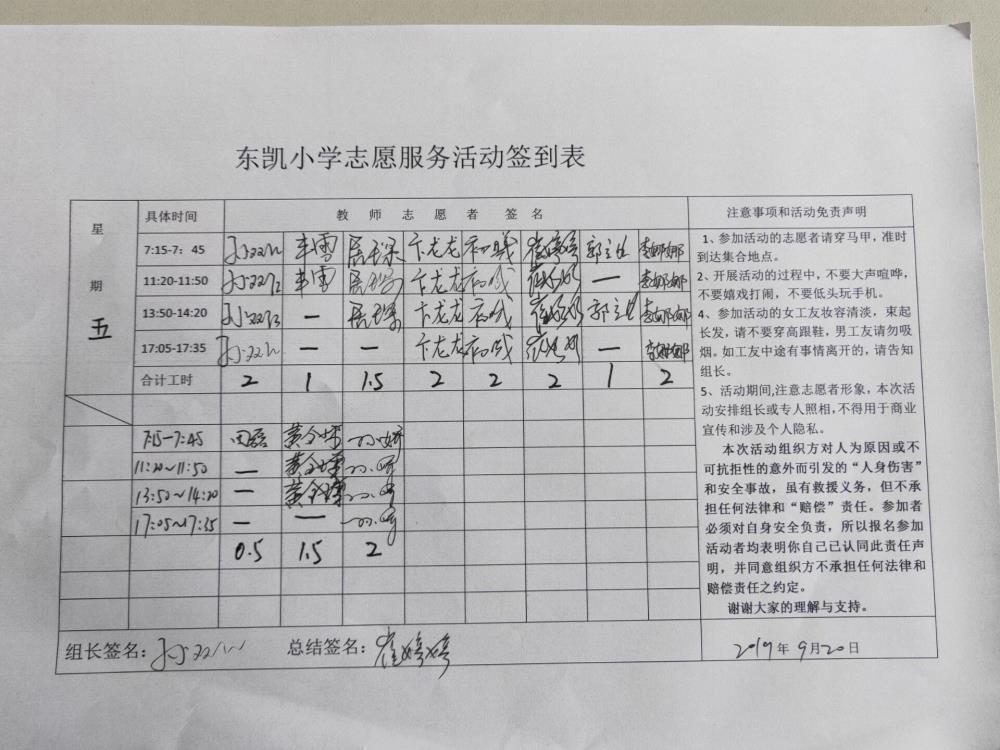 东凯小学志愿服务活动签到表
星期五
具体时间 教师志愿者签名 注意事项和活动免责声明
7:15-7：45 车雪 卞龙龙 崔婷婷 李娜娜
11:20-11:50 车雪 卞龙龙 — 李娜娜
13:50-14:20 — 卞龙龙 李娜娜
17:05-17:35 — — 卞龙龙 — 李娜娜
合计工时 2 1 1.5 2 2 2 1 2
7:15-7:45
11:20~11:50 —
13:50~14:20 —
17:05~17:35 — —
0.5 1.5 2
1、参加活动的志愿者请穿马甲，准时
到达集合地点。
2、开展活动的过程中，不要大声喧哗，
不要嬉戏打闹，不要低头玩手机。
4、参加活动的女工友妆容清淡，束起
长发，请不要穿高跟鞋，男工友请勿吸
烟。如工友中途有事情离开的，请告知
组长。
5、活动期间,注意志愿者形象，本次活
动安排组长或专人照相，不得用于商业
宣传和涉及个人隐私。
本次活动组织方对人为原因或不
可抗拒性的意外而引发的“人身伤害”
和安全事故，虽有救援义务，但不承
担任何法律和“赔偿”责任。参加者
必须对自身安全负责，所以报名参加
活动者均表明你自己已认同此责任声
明，并同意组织方不承担任何法律和
赔偿责任之约定。
谢谢大家的理解与支持。
组长签名： 总结签名：崔婷婷 2019年9月20日